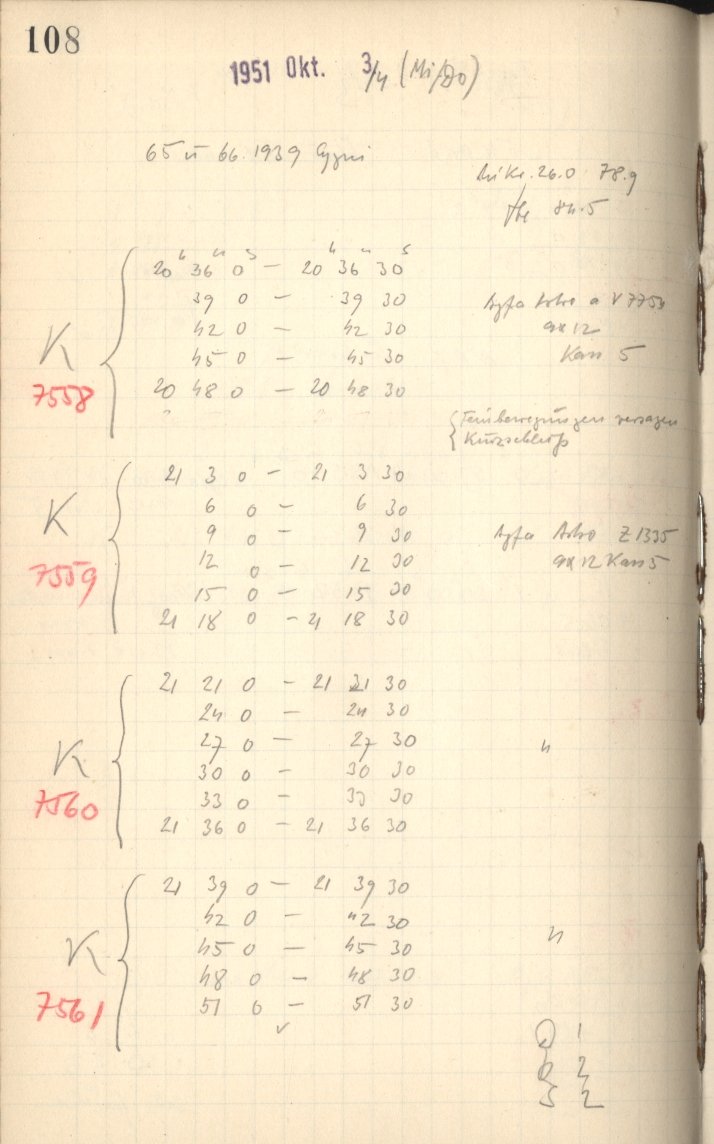 108
1951 Okt. 3/4 (Mi/Do)
65 u 66.1939 Cygni
26.0 78.9
84.5
20h 36m 0s – 20h 36m 30s
39 0 – 39 30
42 0 – 42 30
45 0 – 45 30
20 48 0 – 20 48 30
K
7558
Agfa Astro a V 7750
9x12
Kass 5
Feinbewegungen versagen
Kurzschluß
21 3 0 – 21 3 30
6 0 – 6 30
9 0 – 9 30
12 0 – 12 30
15 0 – 15 30
21 18 0 – 21 18 30
K
7559
Agfa Astro Z 1335
9x12 Kass 5
21 21 0 – 21 21 30
24 0 – 24 30
27 0 – 27 30
30 0 – 30 30
33 0 – 33 30
21 36 0 – 21 36 30
K
7560
"
21 39 0 – 21 39 30
42 0 – 42 30
45 0 – 45 30
48 0 – 48 30
51 0 – 51 30
K
7561
"
D 1
2
S 2